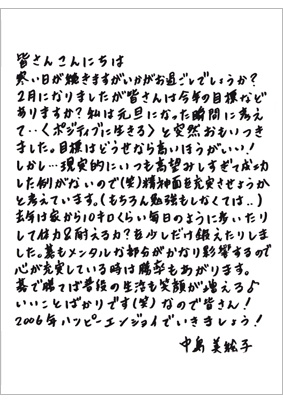 皆さんこんにちは
寒い日が続きますがいかがお過ごしでしょうか?
2月になりましたが皆さんは今年の目標など
ありますか?私は元旦になった瞬間に考え
て・・〈ポジティブに生きる〉と突然おもいつき
ました。目標はどうせなら高いほうがいい!
しかし…現実的にいつも高望みしすぎて成功
した例がないので(笑)精神面を充実させようか
と考えています。(もちろん勉強もしなくては‥)
去年は家から10キロくらい毎日のように歩いたり
して体力&耐える力?を少しだけ鍛えたりしま
した。碁もメンタルな部分がかなり影響するので
心が充実している時は勝率もあがります。
碁で勝てば普段の生活も笑顔が増えるし
いいことばかりです(笑)なので皆さん!
2006年ハッピーエンジョイでいきましょう!
中島美絵子